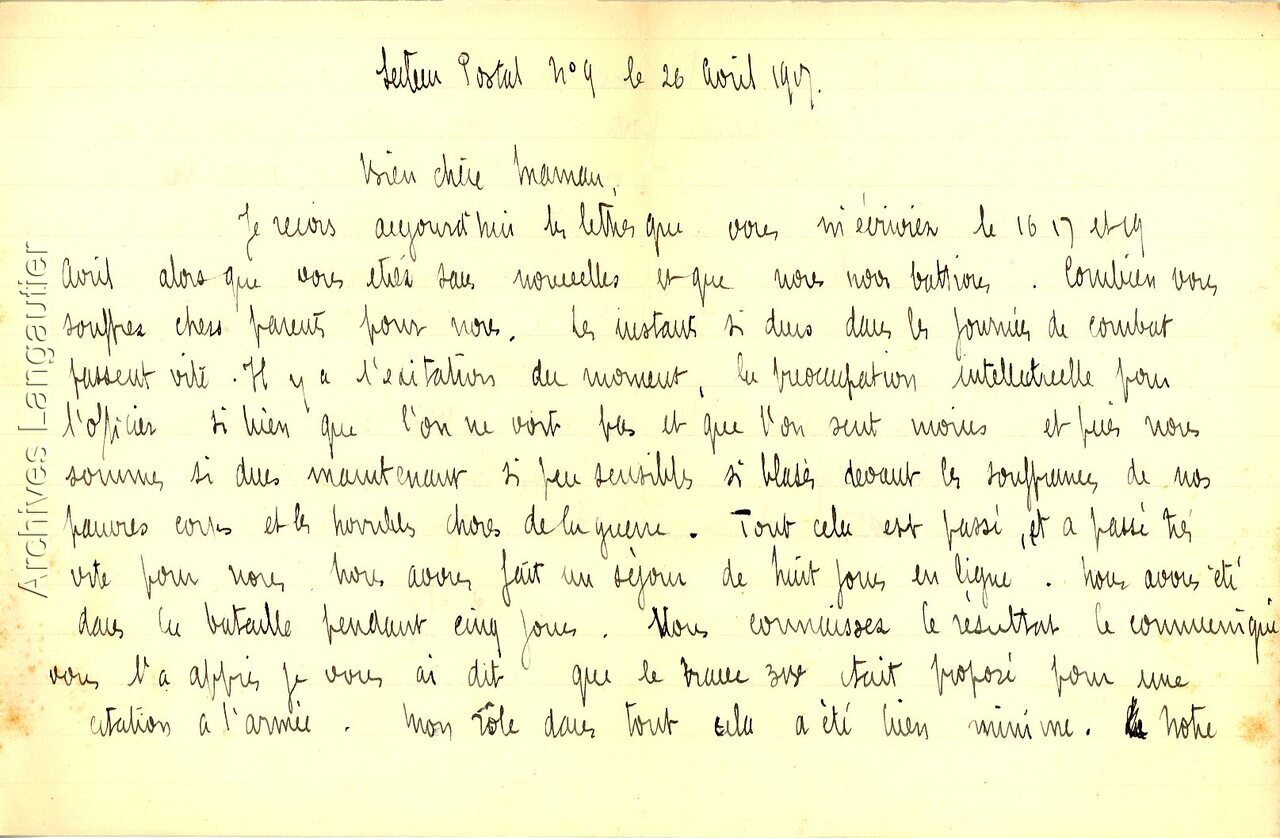 Secteur Postal N° 9 le 26 Avril 1917.
Bien chère Maman,
Je reçois aujourd'hui les lettres que vous m'écriviez le 16 17 et 19
Avril alors que vous etiez sans nouvelles et que nous nous battions. Combien vous
souffrez chers parents pour nous. Les instants si durs dans les journées de combat
passent vite. Il y a l'exitation du moment, la préoccupation intellectuelle pour
l'officier si bien que l'on ne voit pas et que l'on sent moins et puis nous
sommes si durs maintenant si peu sensibles si blasés devant les souffrances de nos
pauvres corps et les horribles choses de la guerre. Tout cela est passé, et a passé très
vite pour nous. Nous avons fait un séjour de huit jours en ligne. Nous avons été
dans la bataille pendant cinq jours. Vous connaissez le résultat le communiqué
vous l'a appris je vous ai dit que le brave était proposé pour une
citation a l'armée. Mon rôle dans tout cela a été bien minime. Notre
Archives Langautier